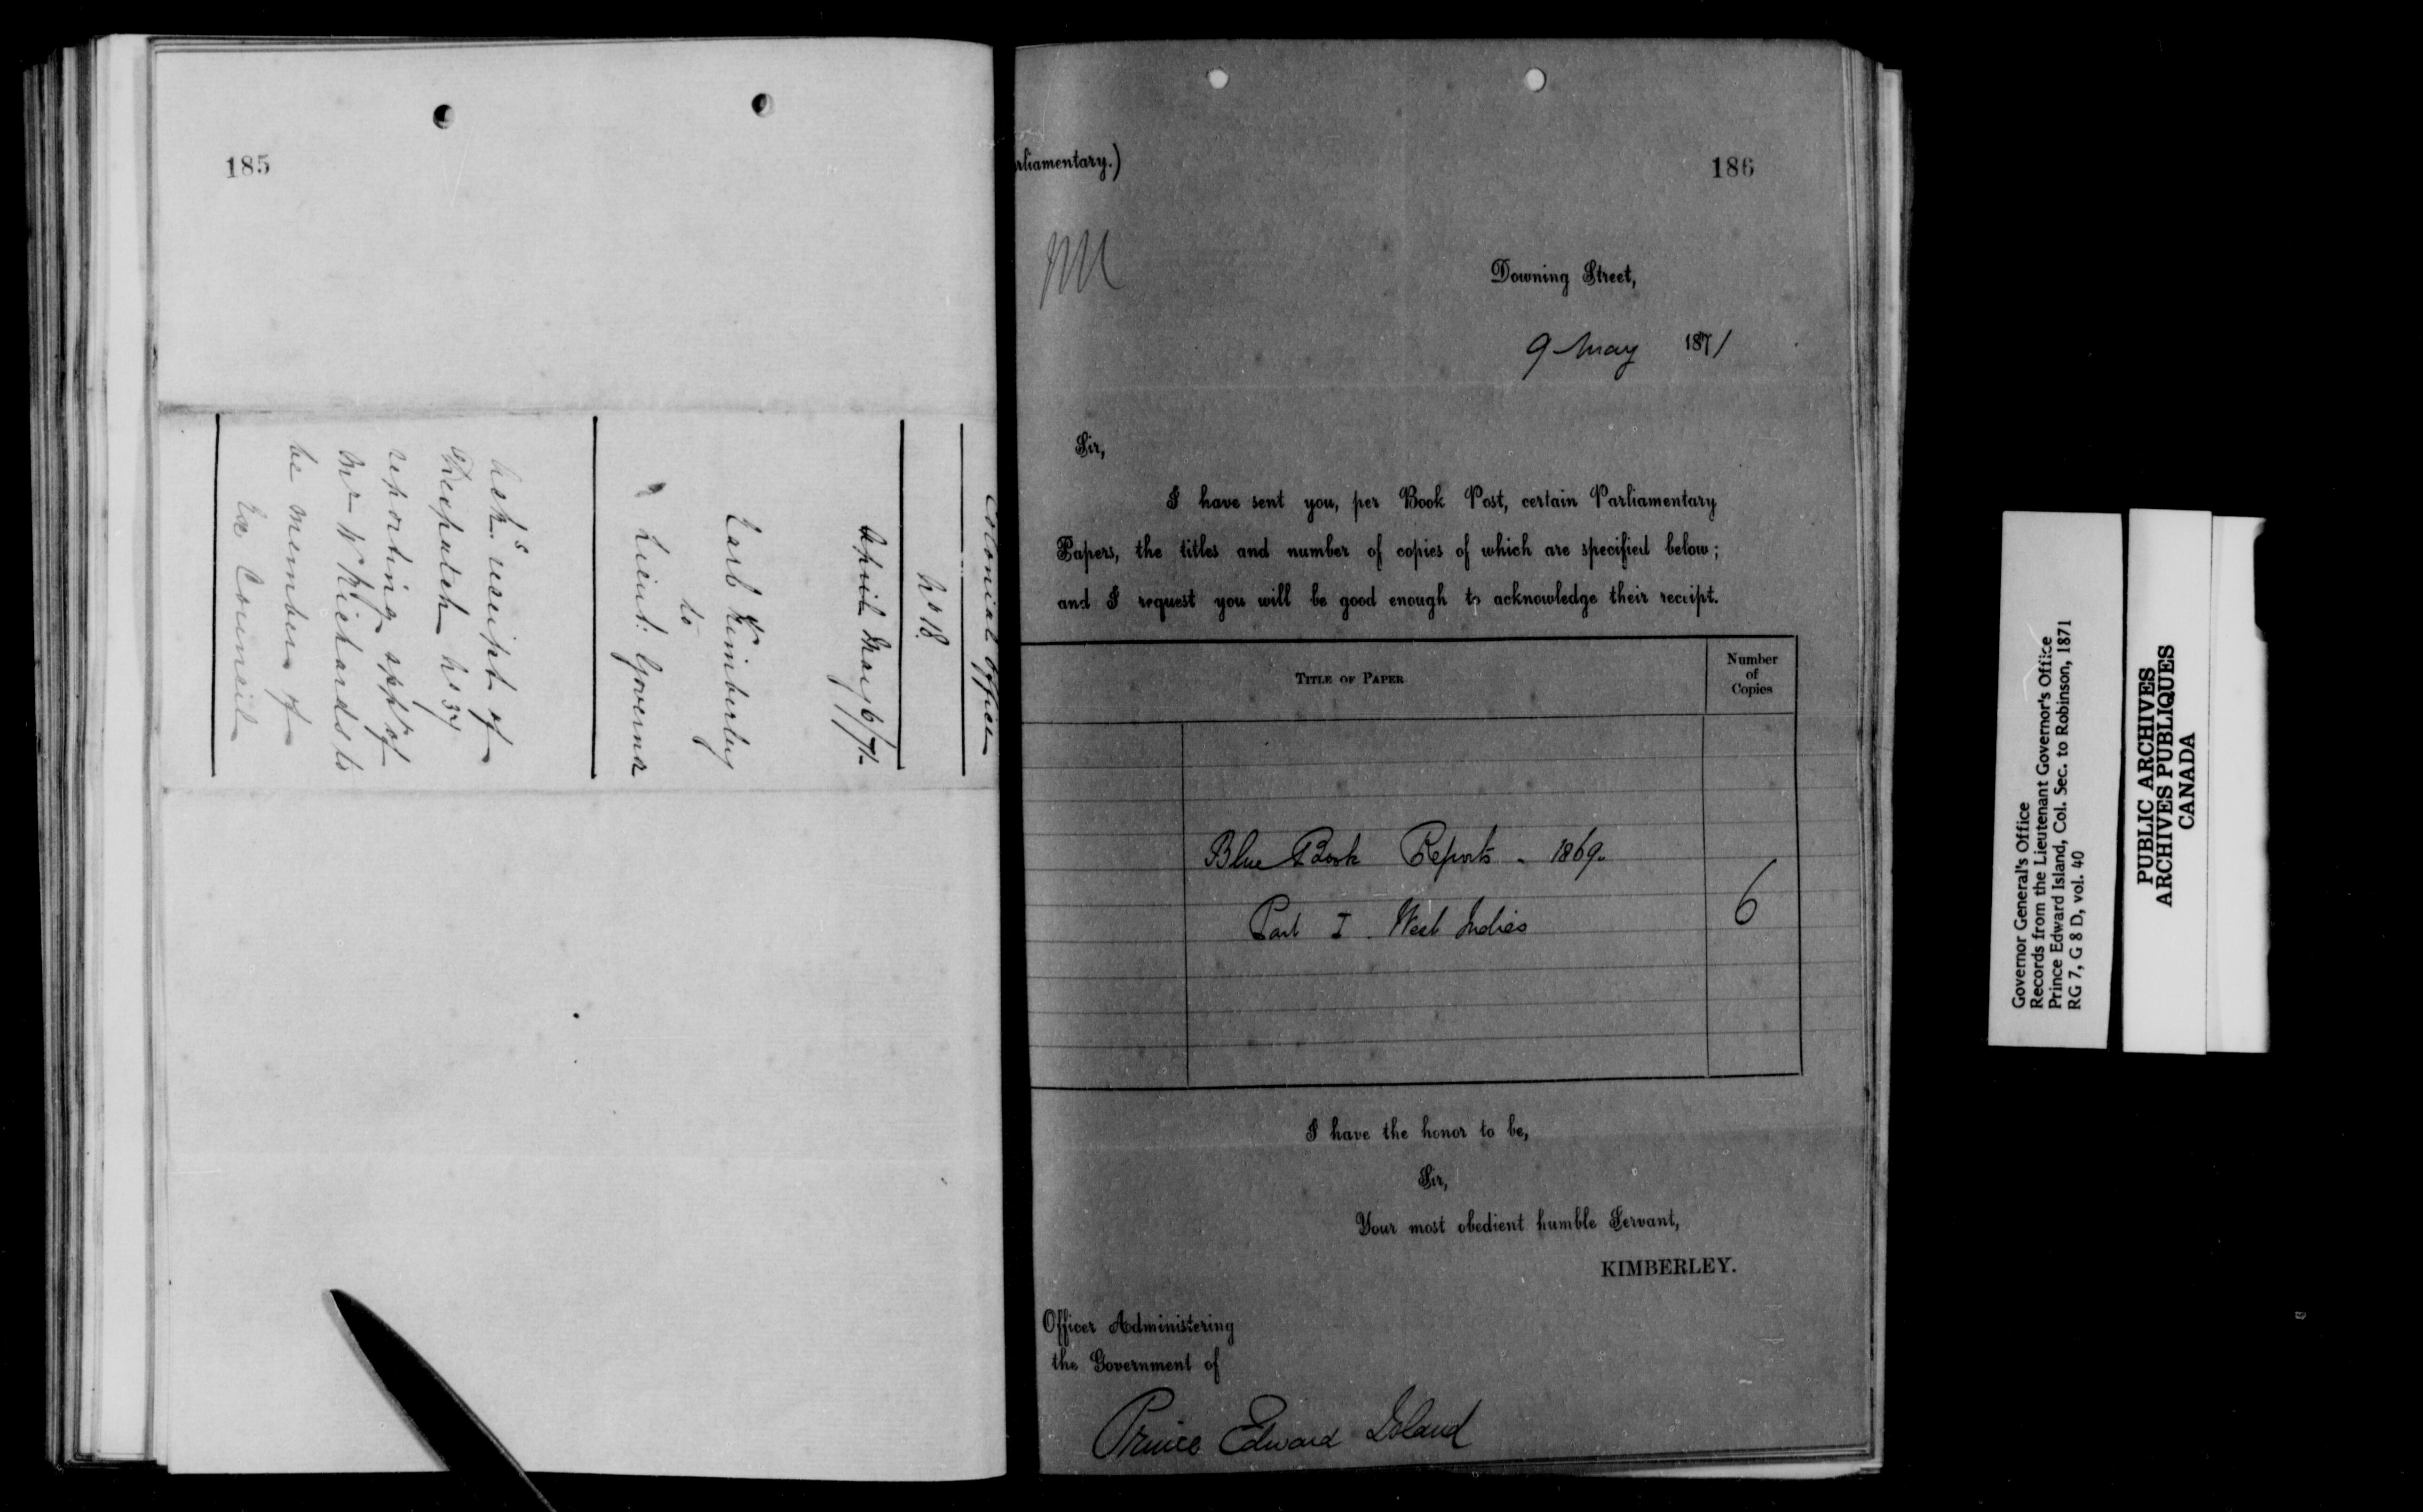 185
Colonial Office
No 18.
April May 6/71
Earl Kimberley
to
Lieut: Governor
Ack:s receipt of
Despatch No 34
reporting appt of
Mr W Richards to
be member of
Ex Council
(Parliamentary.)
186
Downing Street,
9 May 1871
Sir,
I have sent you, per Book Post, certain Parliamentary
Papers, the titles and number of copies of which are specified below;
and I request you will be good enough to acknowledge their receipt.
TITLE OF PAPER
Number
of
Copies
Blue Book Reports - 1869.
Part I. West Indies
6
I have the honor to be,
Sir,
Your most obedient humble Servant,
KIMBERLEY.
Officer Administering
the Government of
Prince Edward Island
Governor General's Office
Records from the Lieutenant Governor's Office
Prince Edward Island, Col. Sec. to Robinson, 1871
RG 7, G 8 D, vol. 40
PUBLIC ARCHIVES
ARCHIVES PUBLIQUES
CANADA